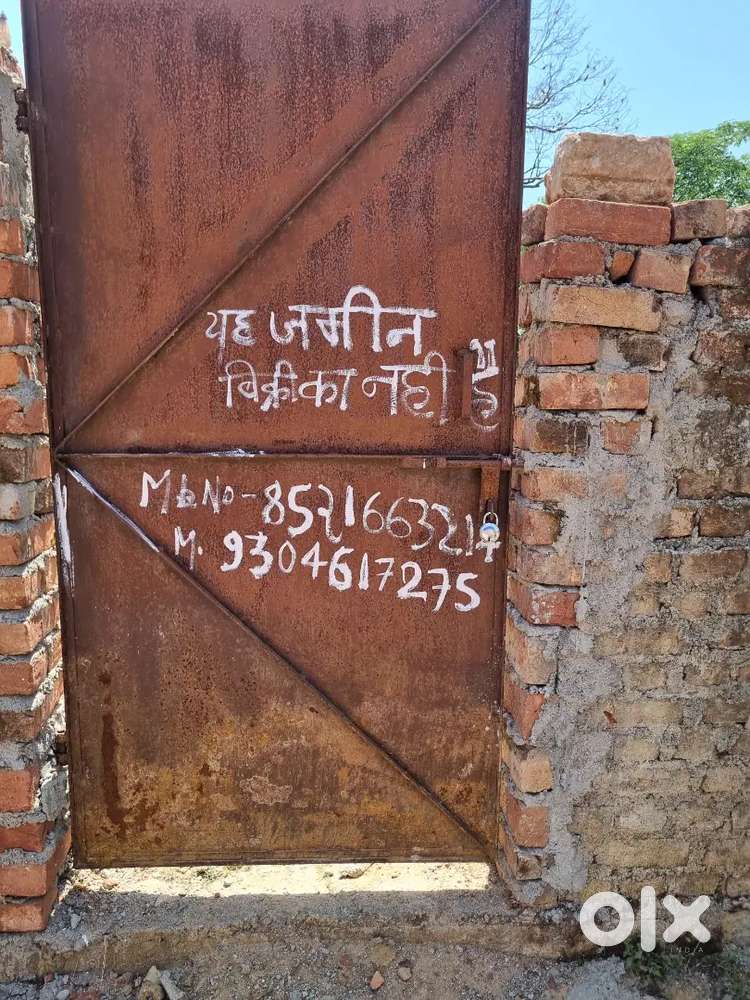 यह जमीन
बिक्री का नहीं है
Mb No - 8521663217
M. 9304617275
olx
INDIA